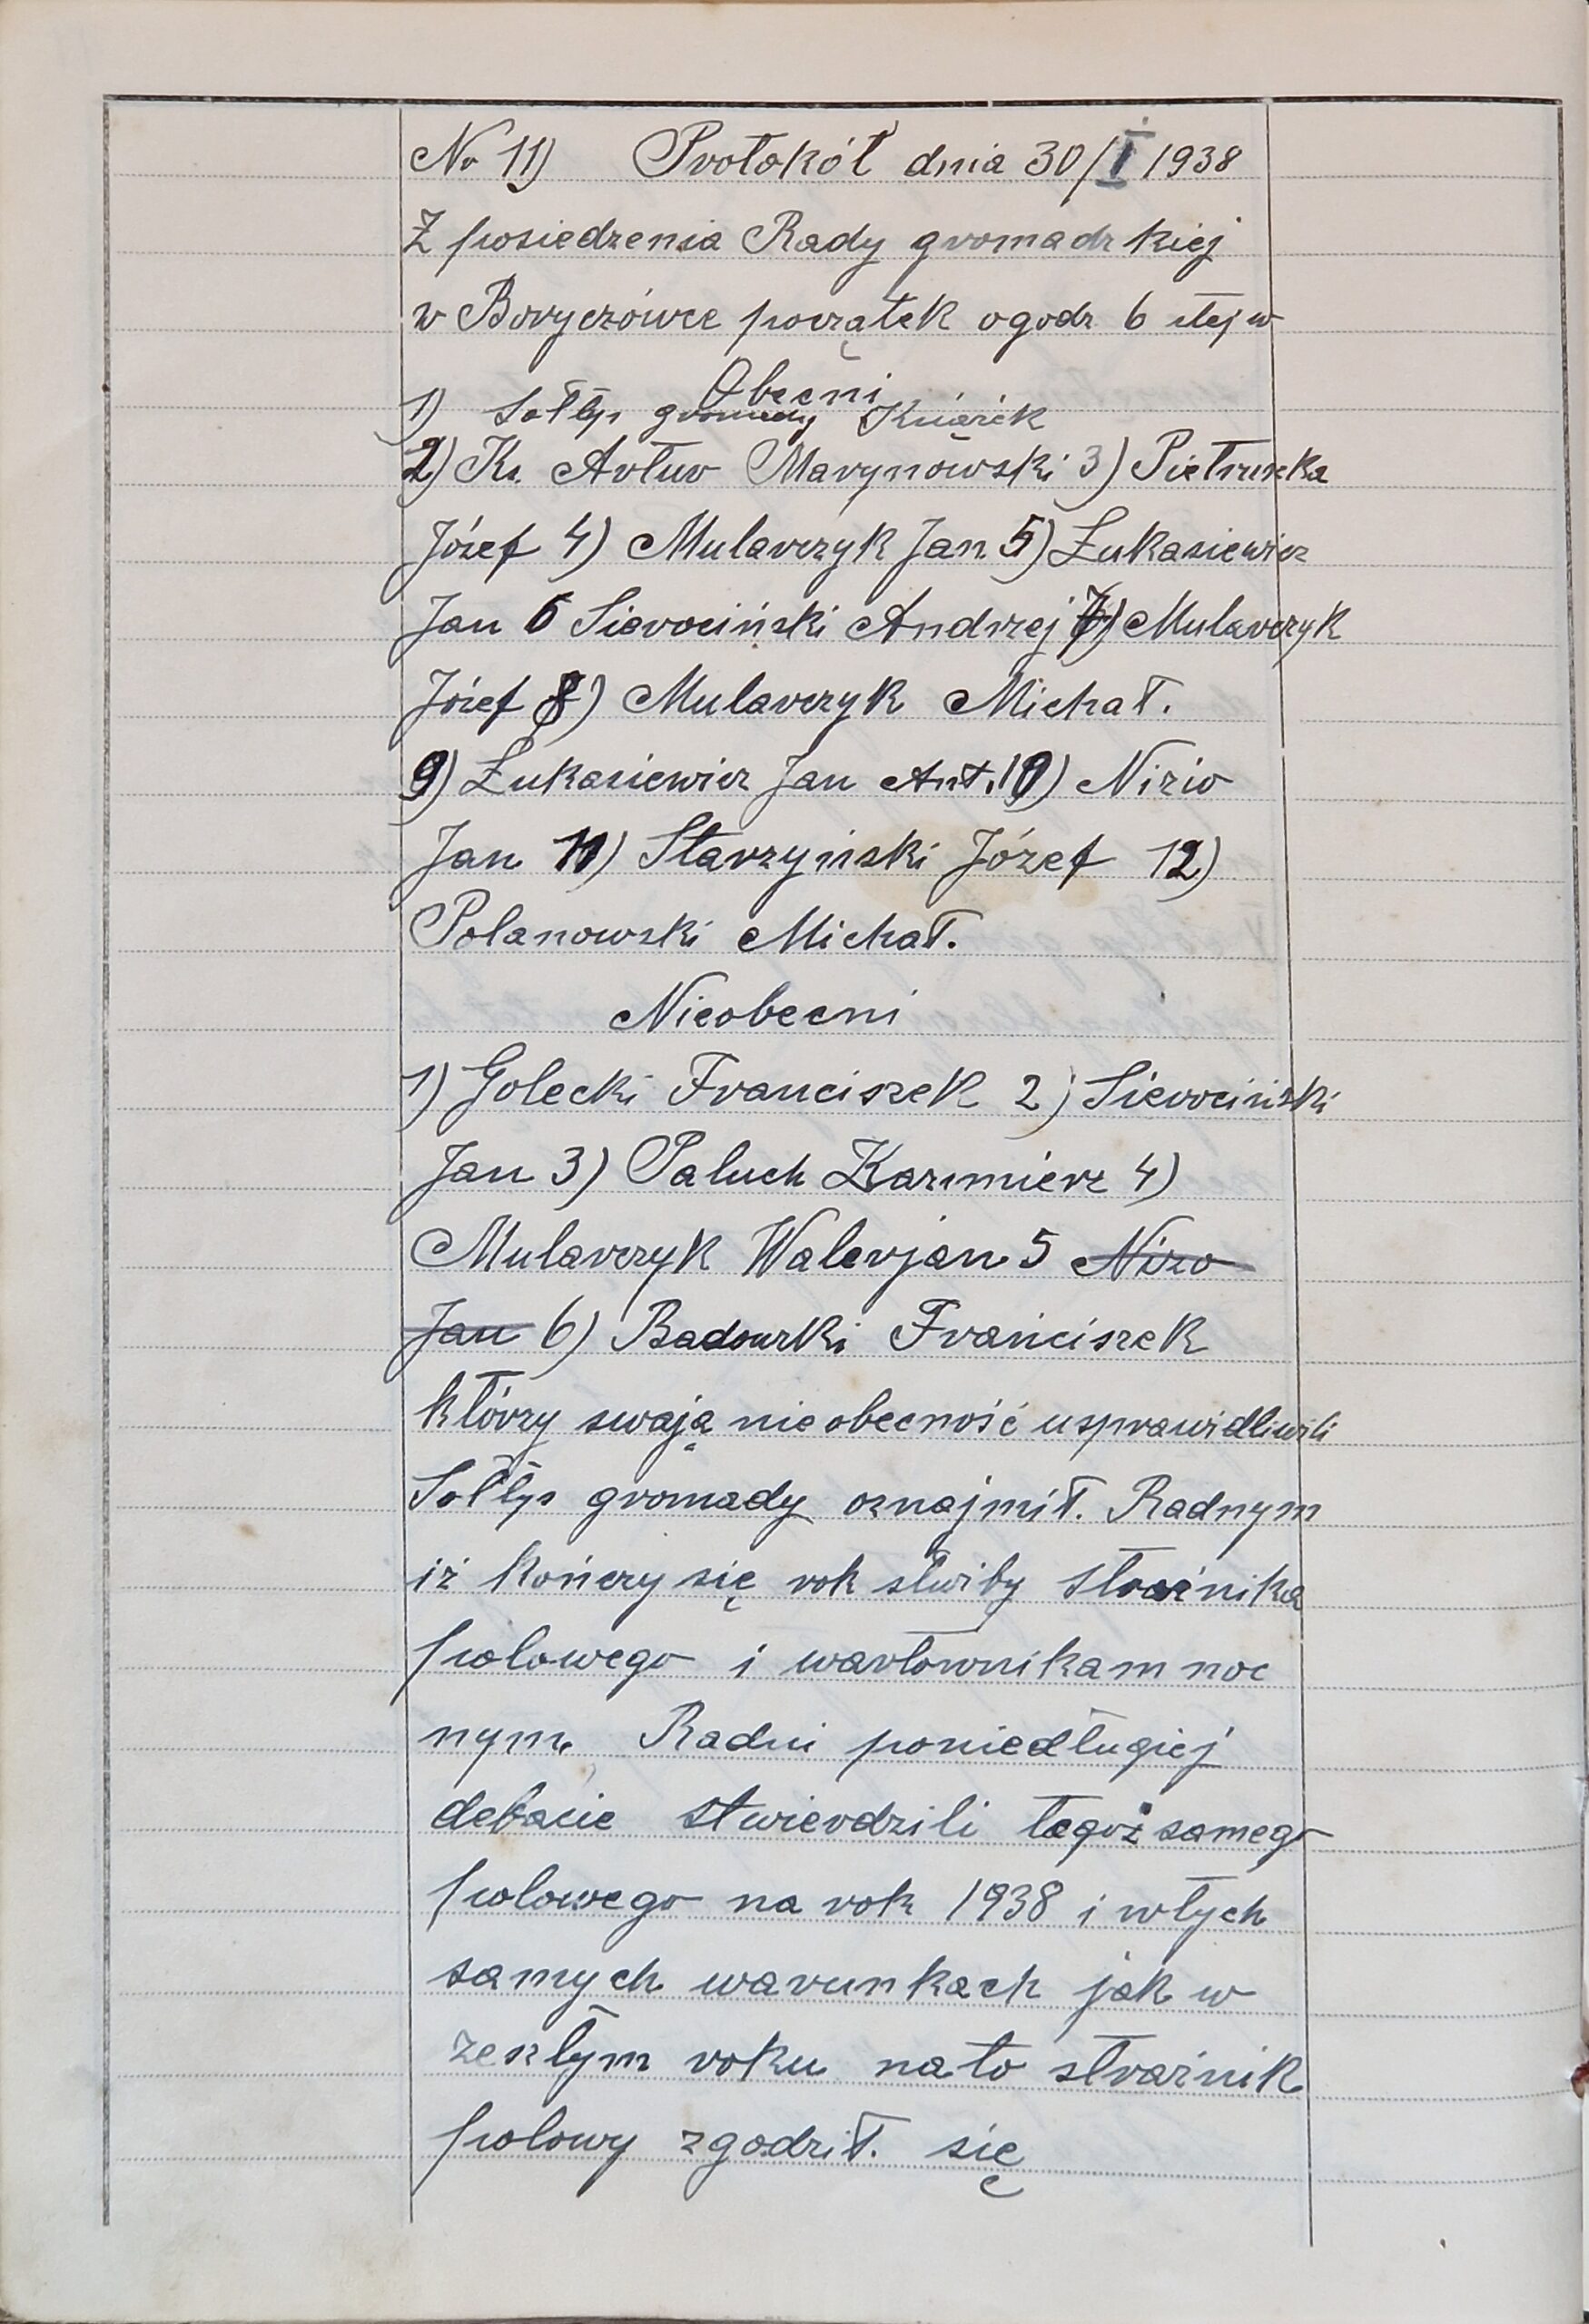 No 11) Protokół dnia 30/I 1938
Z posiedzenia Rady gromadzkiej
w Boryczówce początek o godz 6 stej w
Obecni
1) Sołtys gromady Kniazik
2) Ks. Artur Marynowski 3) Pietruszka
Józef 4) Mularczyk Jan 5) Łukasiewicz
Jan 6 Sierociński Andrzej 7) Mularczyk
Józef 8) Mularczyk Michał.
9) Łukasiewicz Jan Ant. 10) Nizio
Jan 11) Starzyński Józef 12)
Polanowski Michał.
Nieobecni
1) Golecki Franciszek 2) Sierociński
Jan 3) Paluch Kazimierz 4)
Mularczyk Walerjan 5 Nizio
Jan 6) Badowski Franciszek
którzy swają nieobecność usprawidliwili
Sołtys gromady oznajmił. Radnym
iż kończy się rok służby strażnika
polowego i wartownikam noc
nym. Radni poniedługiej
debacie stwierdzili tegoż samego
polowego na rok 1938 i wtych
samych warunkach jak w
zeszłym roku na to strażnik
polowy zgodził. się